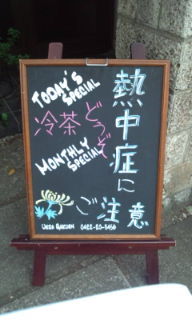 TODAY'S
SPECIAL
冷茶どうぞ
MONTHLY
SPECIAL
熱中症に
ご注意